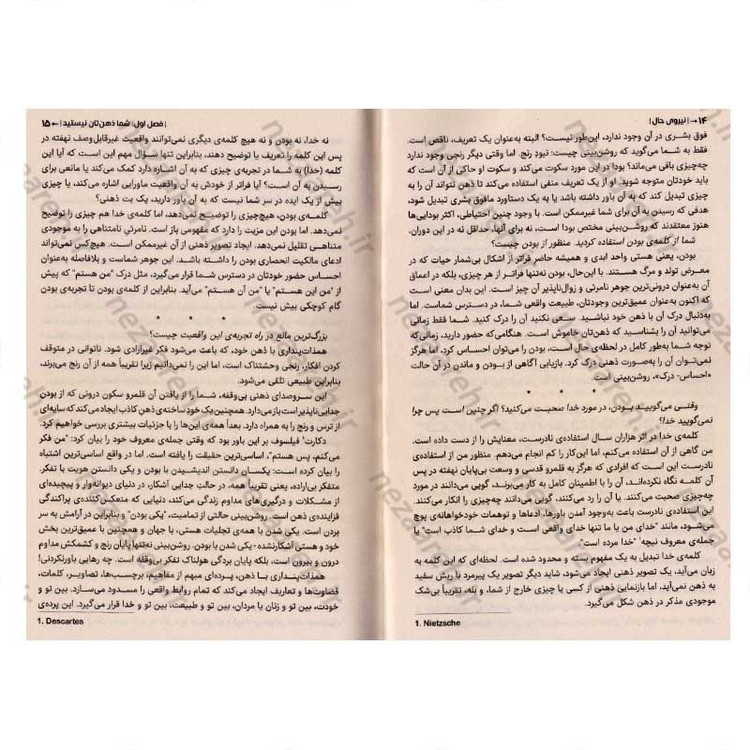 ۱۴ → | نیروی حال |
فوق بشری در آن وجود ندارد، این‌طور نیست؟ البته به‌عنوان یک تعریف، ناقص است.
فقط به شما می‌گوید که روشن‌بینی چیست: نبودِ رنج. اما وقتی دیگر رنجی وجود ندارد
چه‌چیزی باقی می‌ماند؟ بودا در این مورد سکوت می‌کند و سکوت او حاکی از آن است که
باید خودتان متوجه شوید. او از یک تعریف منفی استفاده می‌کند تا ذهن نتواند آن را به
چیزی تبدیل کند که به آن باور داشته باشد یا به یک دستاورد مافوق بشری تبدیل شود،
هدفی که رسیدن به آن برای شما غیرممکن است. با وجود چنین احتیاطی، اکثر بودایی‌ها
هنوز معتقدند که روشن‌بینی مختص بودا است، نه برای آنها، حداقل نه در این دوران.
شما از کلمه‌ی بودن استفاده کردید. منظور از بودن چیست؟
بودن، یعنی هستی واحد ابدی و همیشه حاضرِ فراتر از اشکال بی‌شمار حیات که در
معرض تولد و مرگ هستند. با این‌حال، بودن نه‌تنها فراتر از هر چیزی، بلکه در اعماق
آن به‌عنوان درونی‌ترین جوهر نامرئی و زوال‌ناپذیر آن چیز است. این بدان معنی است
که اکنون به‌عنوان عمیق‌ترین وجودتان، طبیعت واقعی شما، در دسترس شماست. اما
به‌دنبال درک آن با ذهن خود نباشید. سعی نکنید آن را درک کنید. شما فقط زمانی
می‌توانید آن را بشناسید که ذهن‌تان خاموش است. هنگامی‌که حضور دارید، زمانی که
توجه شما به‌طور کامل در لحظه‌ی حال است، بودن را می‌توان احساس کرد، اما هرگز
نمی‌توان آن را به‌صورت ذهنی درک کرد. بازیابی آگاهی از بودن و ماندن در آن حالت
«احساس- درک»، روشن‌بینی است.
* * *
وقتی می‌گویید بودن، در مورد خدا صحبت می‌کنید؟ اگر چنین است پس چرا
نمی‌گویید خدا؟
کلمه‌ی خدا در اثر هزاران سال استفاده‌ی نادرست، معنایش را از دست داده است.
من گاهی از آن استفاده می‌کنم، اما این‌کار را کم انجام می‌دهم. منظور من از استفاده‌ی
نادرست این است که افرادی که هرگز به قلمرو قدسی و وسعت بی‌پایان نهفته در پس
آن کلمه نگاه نکرده‌اند، آن را با اطمینان کامل به کار می‌برند، گویی می‌دانند در مورد
چه‌چیزی صحبت می‌کنند. یا آن را رد می‌کنند، گویی می‌دانند چه‌چیزی را انکار می‌کنند.
این استفاده‌ی نادرست باعث به‌وجود آمدن باورها، ادعاها و توهمات خودخواهانه‌ی پوچ
می‌شود، مانند "خدای من یا ما تنها خدای واقعی است و خدای شما کاذب است" یا
جمله‌ی معروف نیچه¹ "خدا مرده است".
کلمه‌ی خدا تبدیل به یک مفهوم بسته و محدود شده است. لحظه‌ای که این کلمه به
زبان می‌آید، یک تصویر ذهنی ایجاد می‌شود، شاید دیگر تصویر یک پیرمرد با ریش سفید
به ذهن نمی‌آید، اما بازنمایی ذهنی از کسی یا چیزی خارج از شما، و بله، تقریباً بی‌شک
موجودی مذکر در ذهن شکل می‌گیرد.
1. Nietzsche
| فصل اول: شما ذهن‌تان نیستید | ← ۱۵
نه خدا، نه بودن و نه هیچ کلمه‌ی دیگری نمی‌توانند واقعیت غیرقابل‌وصف نهفته در
پس این کلمه را تعریف یا توضیح دهند، بنابراین تنها سؤال مهم این است که آیا این
کلمه (خدا) به شما در تجربه‌ی چیزی که به آن اشاره دارد کمک می‌کند یا مانعی برای
رسیدن به آن است؟ آیا فراتر از خودش به آن واقعیت ماورایی اشاره می‌کند، یا چیزی
بیش از یک ایده در سر شما نیست که به آن باور دارید، یک بت ذهنی؟
کلمه‌ی بودن، هیچ‌چیزی را توضیح نمی‌دهد، اما کلمه‌ی خدا هم چیزی را توضیح
نمی‌دهد. اما بودن این مزیت را دارد که مفهومی باز است. نامرئیِ نامتناهی را به موجودی
متناهی تقلیل نمی‌دهد. ایجاد تصویر ذهنی از آن غیرممکن است. هیچ‌کس نمی‌تواند
ادعای مالکیت انحصاری بودن را داشته باشد. این جوهر شماست و بلافاصله به‌عنوان
احساس حضور خودتان در دسترس شما قرار می‌گیرد، مثل درک "من هستم" که پیش
از "من این هستم" یا "من آن هستم" می‌آید. بنابراین از کلمه‌ی بودن تا تجربه‌ی بودن
گام کوچکی بیش نیست.
* * *
بزرگ‌ترین مانع در راه تجربه‌ی این واقعیت چیست؟
همذات‌پنداری با ذهن خود، که باعث می‌شود فکر غیرارادی شود. ناتوانی در متوقف
کردن افکار، رنجی وحشتناک است، اما این را نمی‌دانیم زیرا تقریباً همه از آن رنج می‌برند،
بنابراین طبیعی تلقی می‌شود.
این سروصدای ذهنی بی‌وقفه، شما را از یافتن آن قلمرو سکون درونی که از بودن
جدایی‌ناپذیر است باز می‌دارد. همچنین یک خودِ ساخته‌ی ذهن کاذب ایجاد می‌کند که سایه‌ای
از ترس و رنج را به همراه دارد. بعداً همه‌ی این‌ها را با جزئیات بیشتری بررسی خواهیم کرد.
دکارت¹ فیلسوف بر این باور بود که وقتی جمله‌ی معروف خود را بیان کرد: "من فکر
می‌کنم، پس هستم"، اساسی‌ترین حقیقت را یافته است. اما در واقع اساسی‌ترین اشتباه
را بیان کرده است: یکسان دانستن اندیشیدن با بودن و یکی دانستن هویت با تفکر.
متفکر بی‌اراده، یعنی تقریباً همه، در حالتِ جدایی آشکار، در دنیای دیوانه‌وار و پیچیده‌ای
از مشکلات و درگیری‌های مداوم زندگی می‌کند، دنیایی که منعکس‌کننده‌ی پراکندگی
فزاینده‌ی ذهن است. روشن‌بینی حالتی از تمامیت، "یکی بودن" و بنابراین در آرامش به سر
بردن است. یکی شدن با همه‌ی تجلیات هستی، با جهان و همچنین با عمیق‌ترین بخش
خود و هستی آشکارنشده - یکی شدن با بودن. روشن‌بینی نه‌تنها پایان رنج و کشمکش مداوم
درون و بیرون است، بلکه پایان بردگی هولناک تفکر بی‌وقفه است. چه رهایی باورنکردنی!
همذات‌پنداری با ذهن، پرده‌ای مبهم از مفاهیم، برچسب‌ها، تصاویر، کلمات،
قضاوت‌ها و تعاریف ایجاد می‌کند که تمام روابط واقعی را مسدود می‌سازد. بین تو و
خودت، بین تو و زنان یا مردان، بین تو و طبیعت، بین تو و خدا قرار می‌گیرد. این پرده‌ی
1. Descartes
nezareh.ir